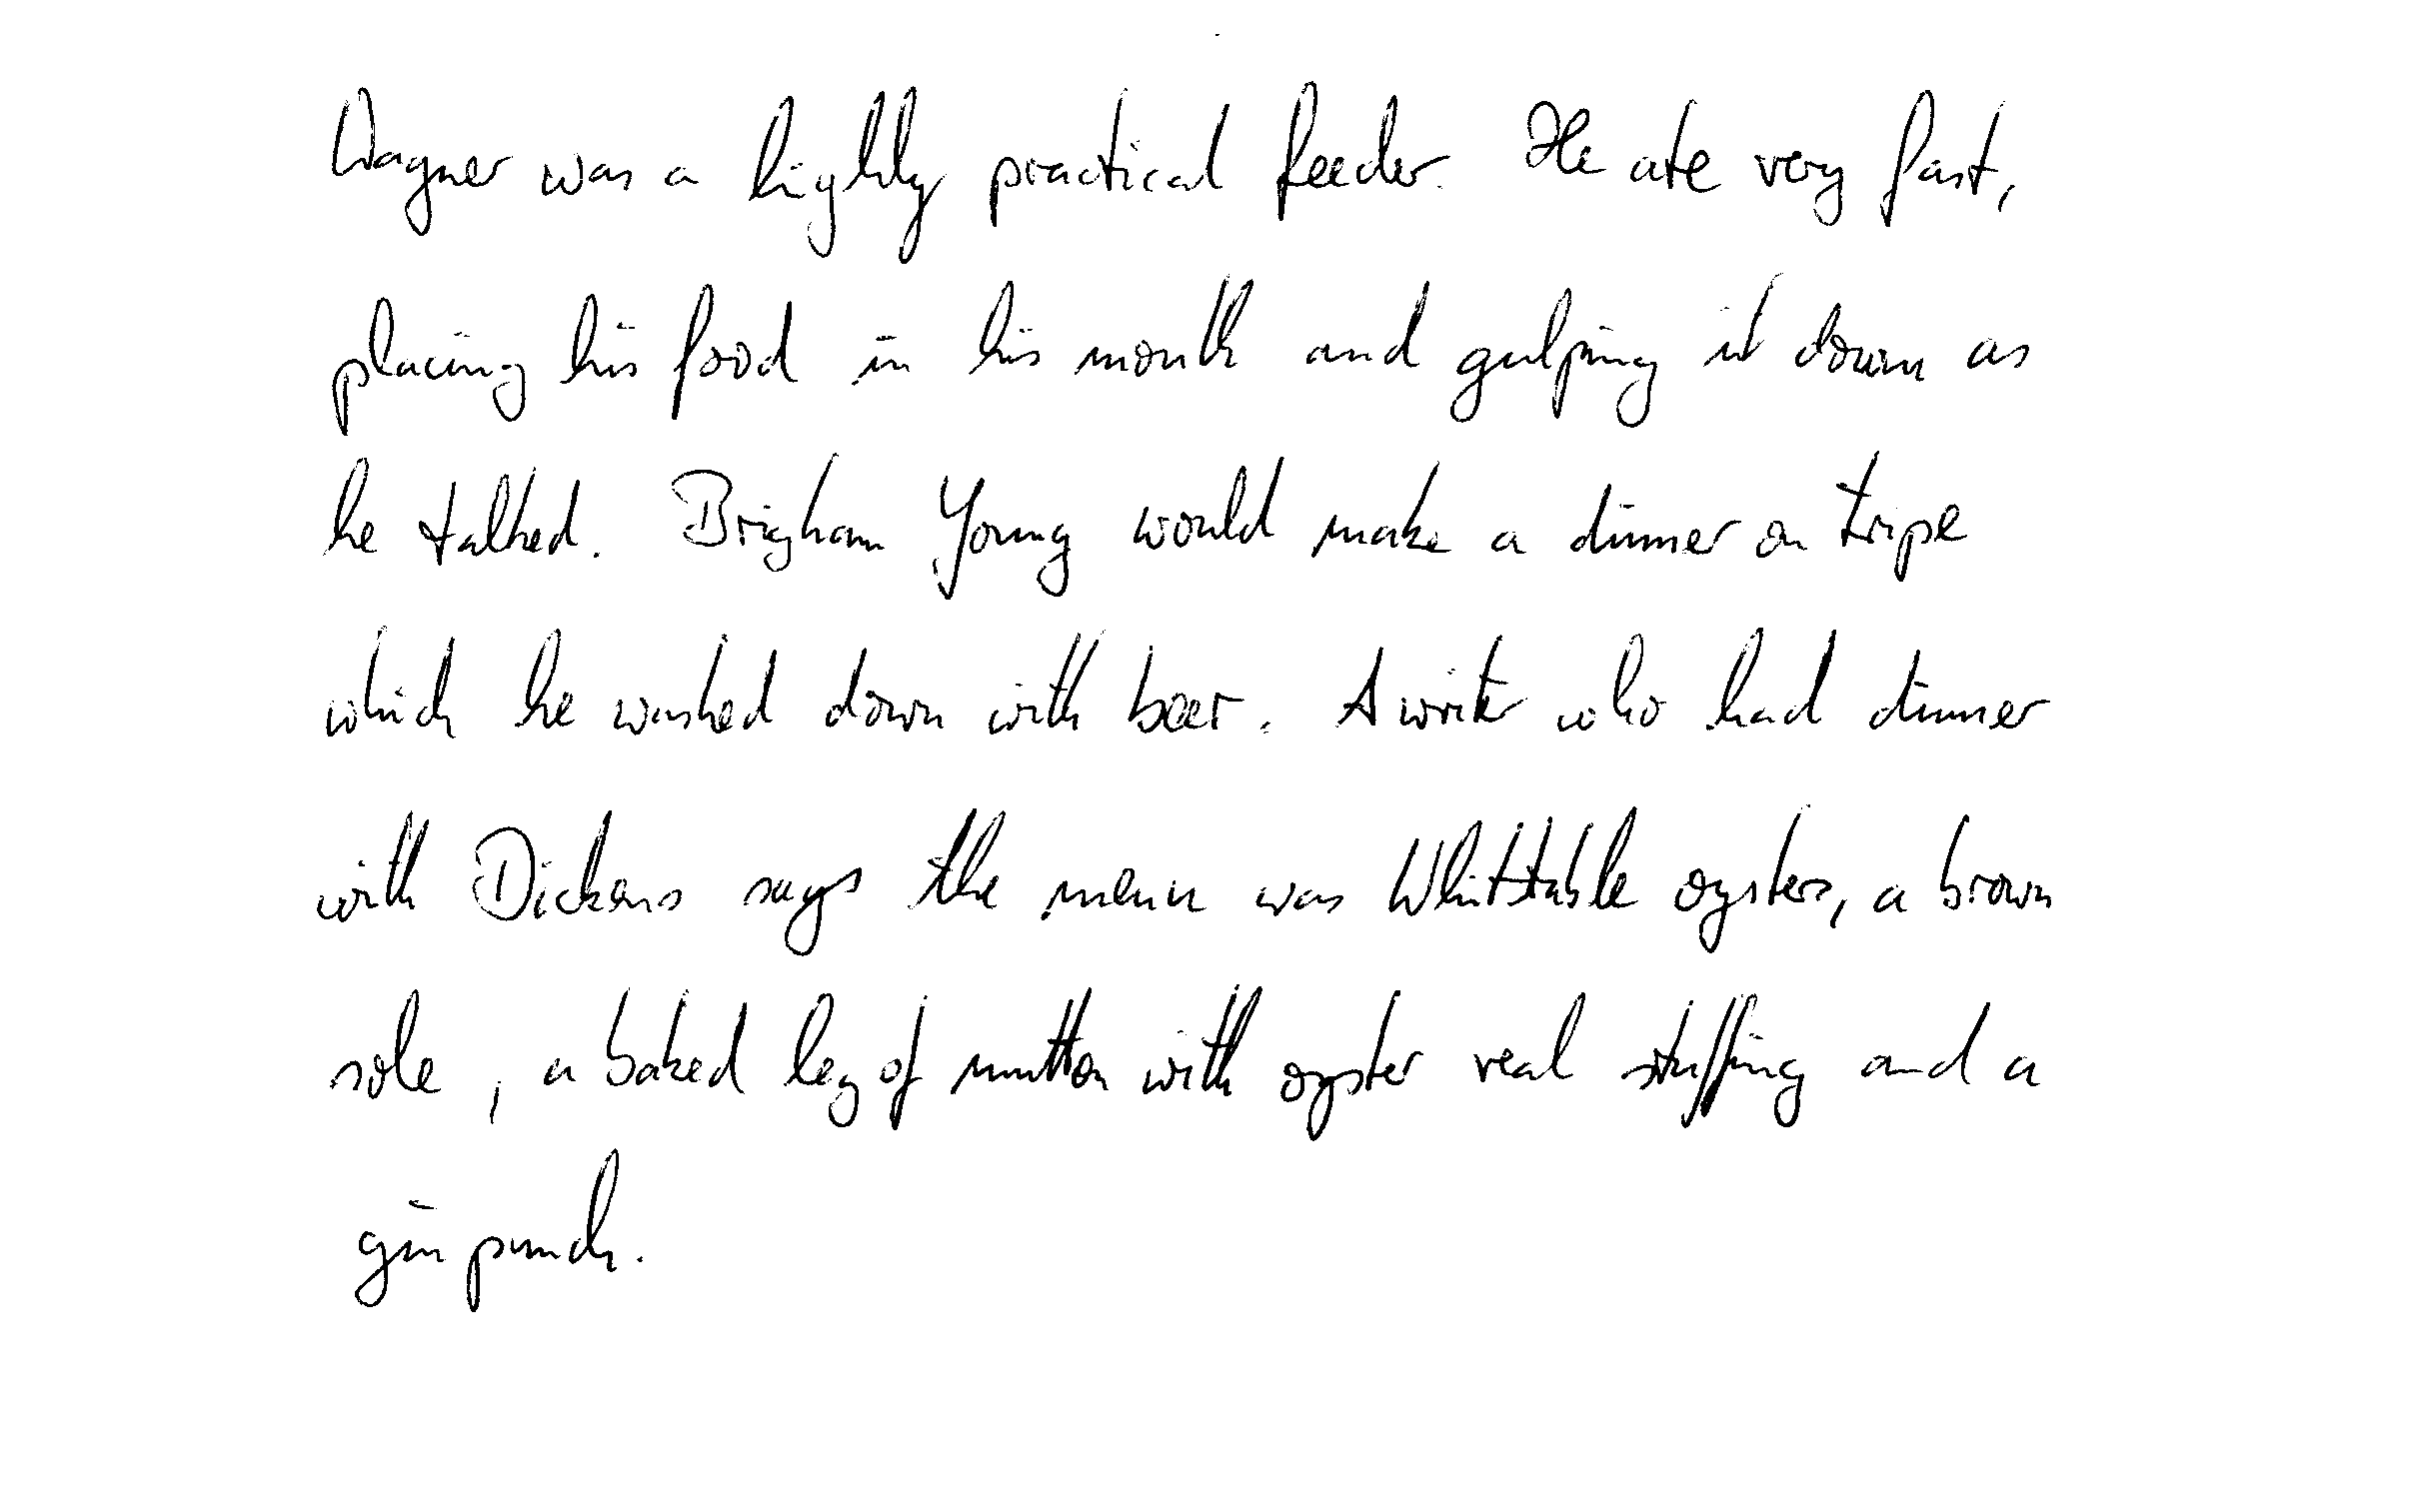 Wagner was a highly practical feeder. He ate very fast,
placing his food in his mouth and gulping it down as
he talked. Brigham Young would make a dinner on tripe
which he washed down with beer. A writer who had dinner
with Dickens says the menu was Whitstable oysters, a brown
sole, a baked leg of mutton with oyster veal stuffing and a
gin punch.